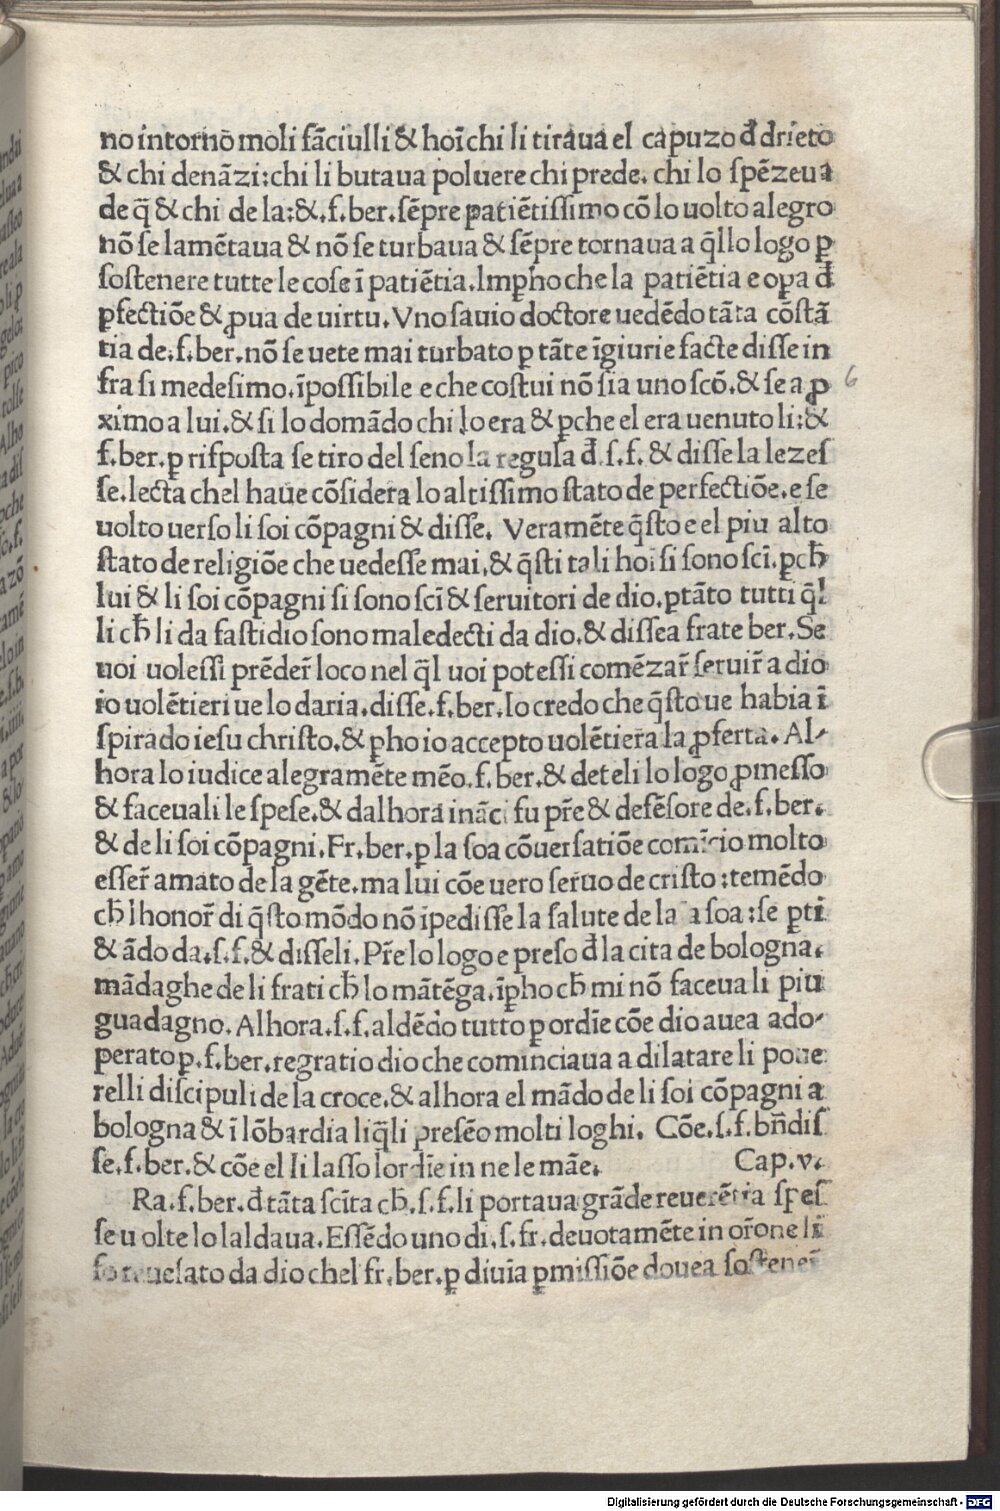 no intornõ moli fãciulli & hoĩ chi li tiraua el capuzo đ drieto
& chi denãzi: chi li butaua poluere chi prede. chi lo spẽzeua
de q̃ & chi de la: &. f. ber. sẽpre patiẽtissimo cõ lo uolto alegro
nõ se lamẽtaua & nõ se turbaua & sẽpre tornaua a q̃llo logo ꝑ
sostenere tutte le cose ĩ patiẽtia. Imꝑho che la patiẽtia e oꝑa đ
ꝑfectiõe & ꝓua de uirtu. Vno sauio doctore uedẽdo tãta cõstã
tia de. f. ber. nõ se uete mai turbato ꝑ tãte ĩgiurie facte disse in
fra si medesimo. ĩpossibile e che costui nõ sia uno scõ. & se a ꝓ 6
ximo a lui. & si lo domãdo chi lo era & ꝑche el era uenuto li: &
f. ber. ꝑ risposta se tiro del seno la regula đ. s. f. & disse la lezes
se. lecta chel haue cõsidera lo altissimo stato de perfectiõe. e se
uolto uerso li soi cõpagni & disse. Veramẽte q̃sto e el piu alto
stato de religiõe che uedesse mai. & q̃sti tali hoĩ si sono scĩ. ꝑcħ
lui & li soi cõpagni si sono scĩ & seruitori de dio. ꝑtãto tutti q̃l
li cħ li da fastidio sono maledecti da dio. & disse a frate ber. Se
uoi uolessi prẽder̃ loco nel q̃l uoi potessi comẽzar̃ seruir̃ a dio
io uolẽtieri ue lo daria. disse. f. ber. Io credo che q̃sto ue habia ĩ
spirado iesu christo. & ꝑho io accepto uolẽtiera la ꝓferta. Al-
hora lo iudice alegramẽte mẽo. f. ber. & deteli lo logo ꝓmesso
& faceuali le spese. & dalhora inãci fu pr̃e & defẽsore de. f. ber.
& de li soi cõpagni. Fr. ber. ꝑ la soa cõuersatiõe comĩcio molto
esser̃ amato de la gẽte. ma lui cõe uero seruo de cristo: temẽdo
cħ lhonor̃ di q̃sto mõdo nõ ipedisse la salute de la a soa: se ꝑti
& ãdo da. s. f. & disseli. Pr̃e lo logo e preso đ la cita de bologna.
mãdaghe de li frati cħ lo mãtẽga. ĩꝑho cħ mi nõ faceua li piu
guadagno. Alhora. s. f. aldẽdo tutto ꝑ ordĩe cõe dio auea ado-
perato ꝑ. f. ber. regratio dio che cominciaua a dilatare li poue
relli discipuli de la croce. & alhora el mãdo de li soi cõpagni a
bologna & ĩ lõbardia li q̃li presẽo molti loghi. Cõe. s. f. bñdis
se. f. ber. & cõe el li lasso lordĩe in ne le mãe. Cap. v.
Ra. f. ber. đ tãta scĩta cħ. s. f. li portaua grãde reuerẽtia spes
se uolte lo laldaua. Essẽdo uno di. s. fr. deuotamẽte in or̃one li
fo reuelato da dio chel fr. ber. ꝑ diuĩa ꝑmissiõe douea sostener̃
Digitalisierung gefördert durch die Deutsche Forschungsgemeinschaft - DFG